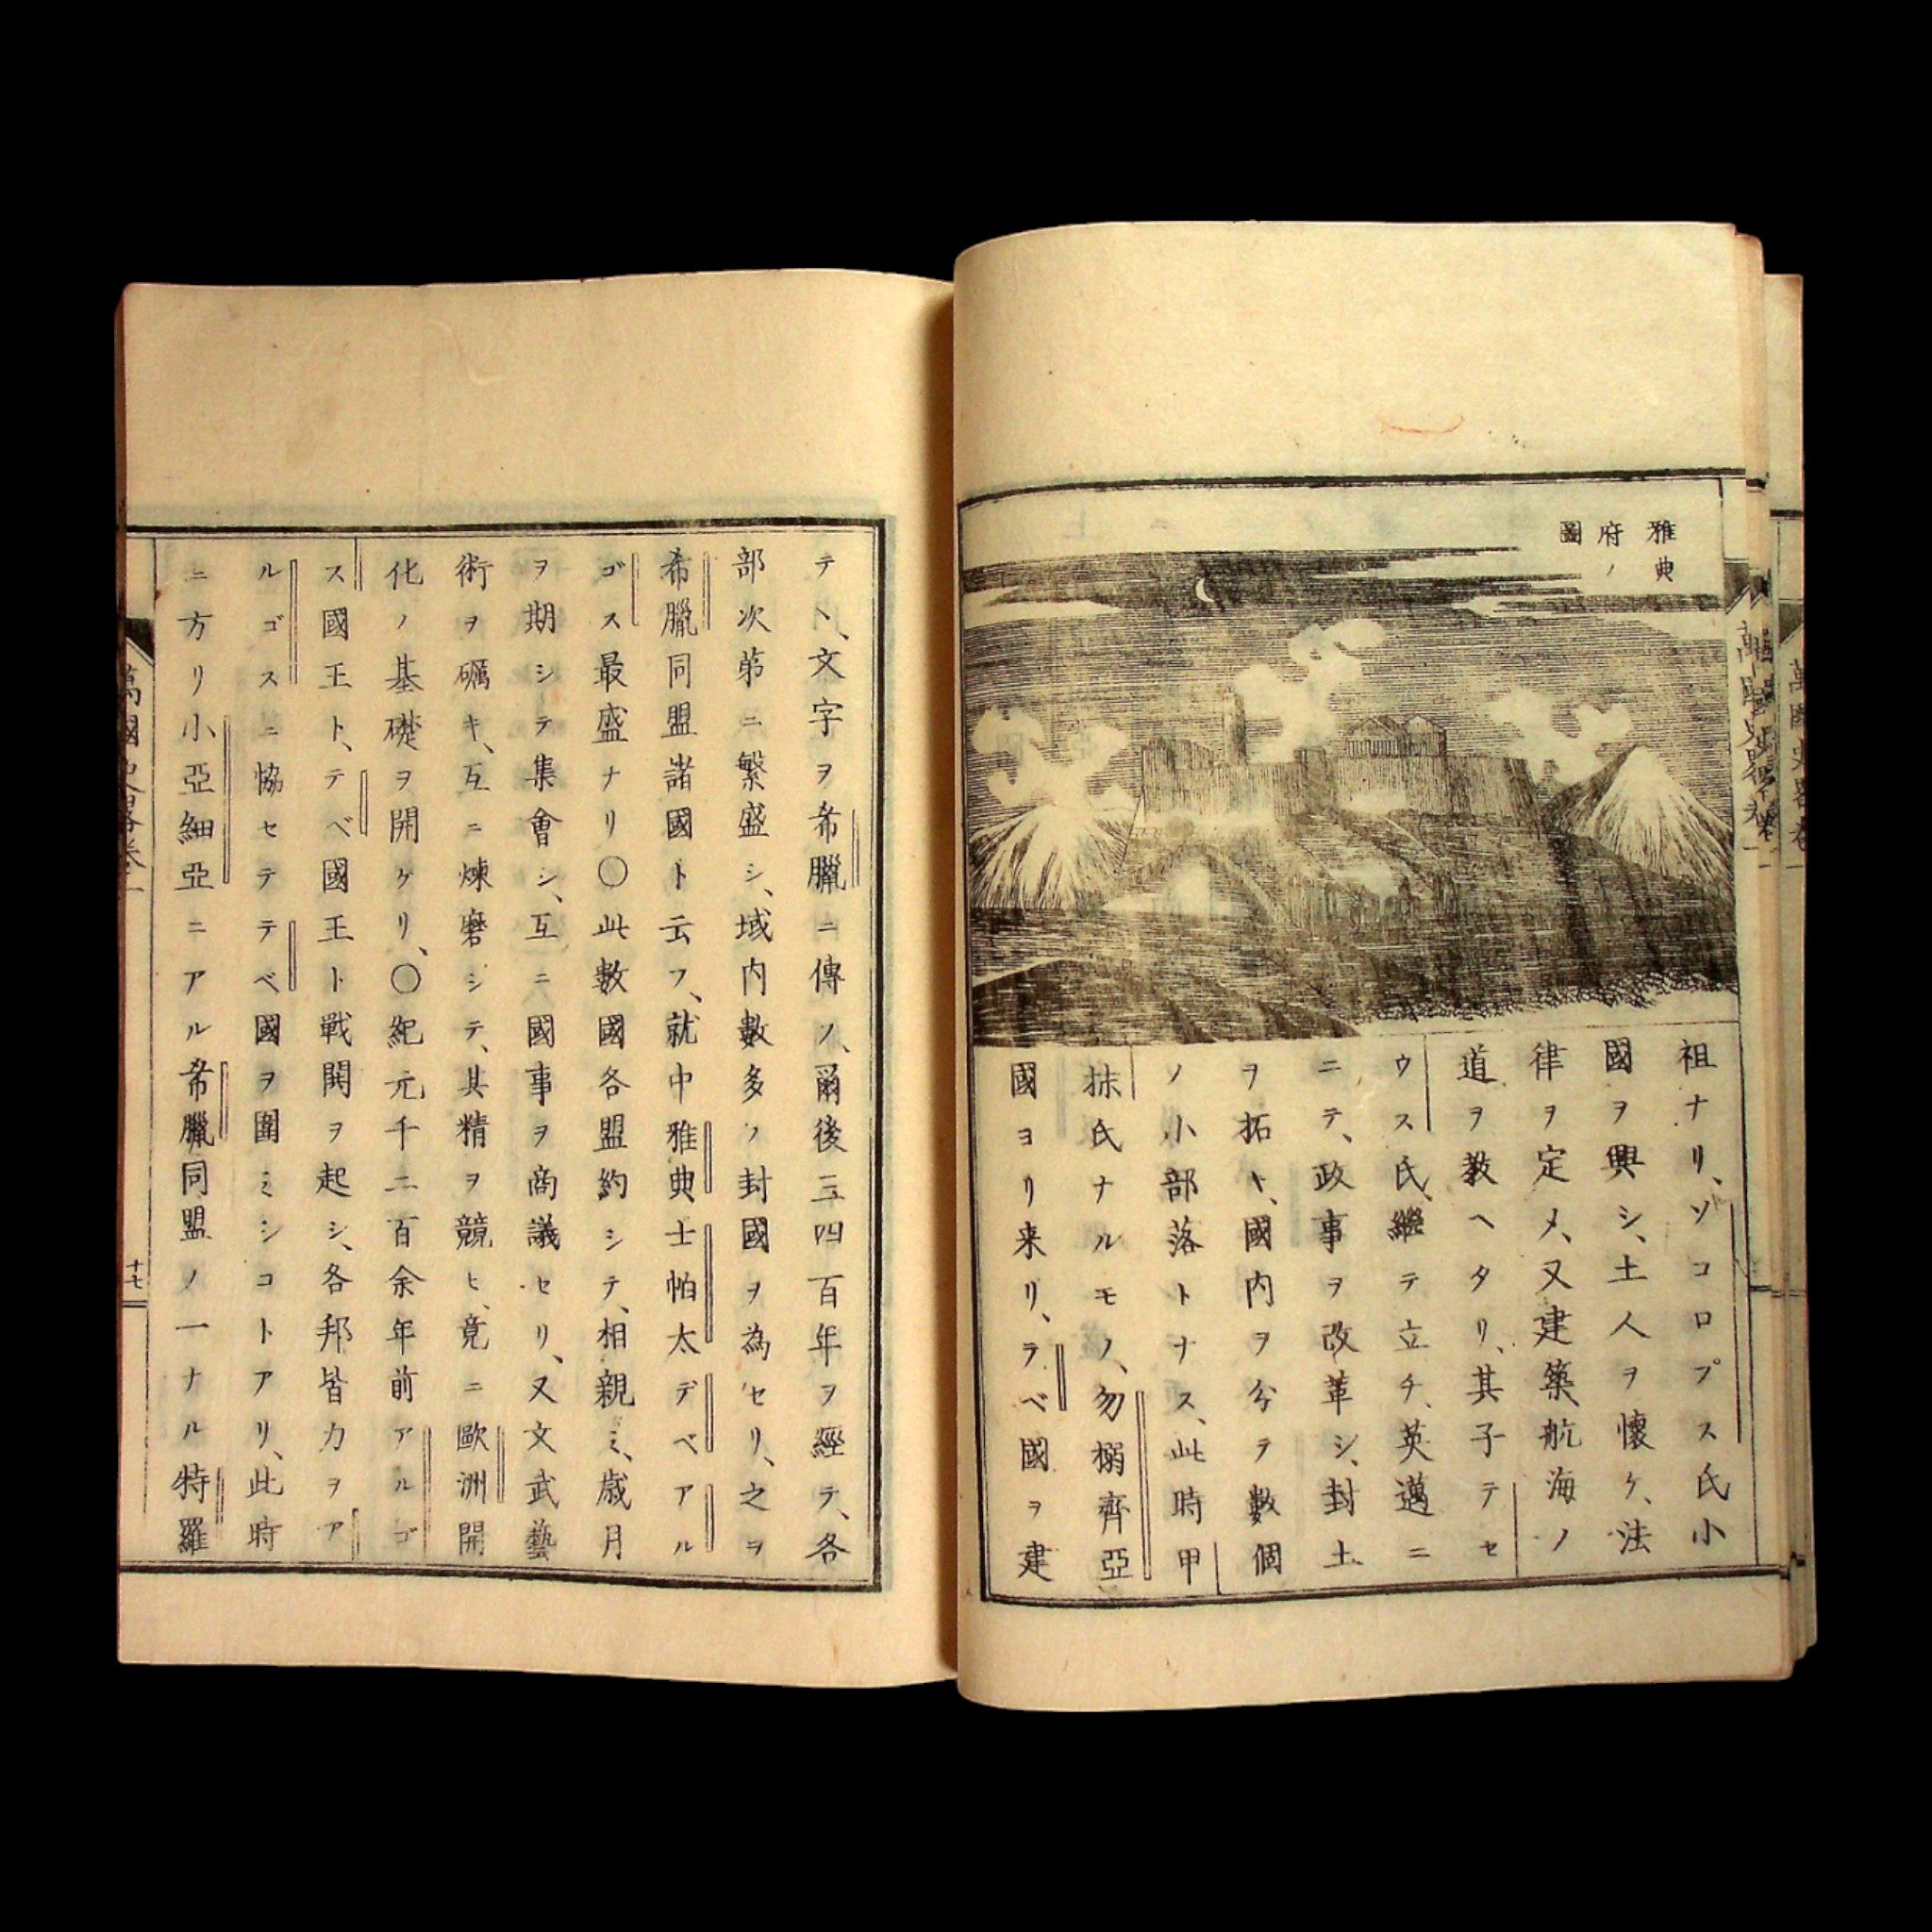 雅典
府ノ
圖
祖ナリ、ソコロプス氏小
國ヲ興シ、土人ヲ懷ケ、法
律ヲ定メ、又建築航海ノ
道ヲ教ヘタリ、其子テセ
ウス氏、繼テ立チ、英邁ニ
ニテ、政事ヲ改革シ、封土
ヲ拓キ、國内ヲ分テ數個
ノ小部落トナス、此時甲
抹氏ナルモノ、勿搦齊亞
國ヨリ来リ、テベ國ヲ建
テヽ、文字ヲ希臘ニ傳ノ、爾後三四百年ヲ經テ、各
部次第ニ繁盛シ、域内數多ノ封國ヲ為セリ、之ヲ
希臘同盟諸國ト云フ、就中雅典士帕太デベアル
ゴス最盛ナリ〇此數國各盟約シテ、相親ミ、歳月
ヲ期シテ集會シ、互ニ國事ヲ商議セリ、又文武藝
術ヲ礪キ、互ニ煉磨シテ、其精ヲ競ヒ、竟ニ歐洲開
化ノ基礎ヲ開ケリ、〇紀元千二百余年前アルゴ
ス國王ト、テベ國王ト戦鬨ヲ起シ、各邦皆力ヲア
ルゴスニ恊セテテベ國ヲ圍ミシコトアリ、此時
ニ方リ小亞細亞ニアル希臘同盟ノ一ナル特羅
萬國史畧卷一
十七